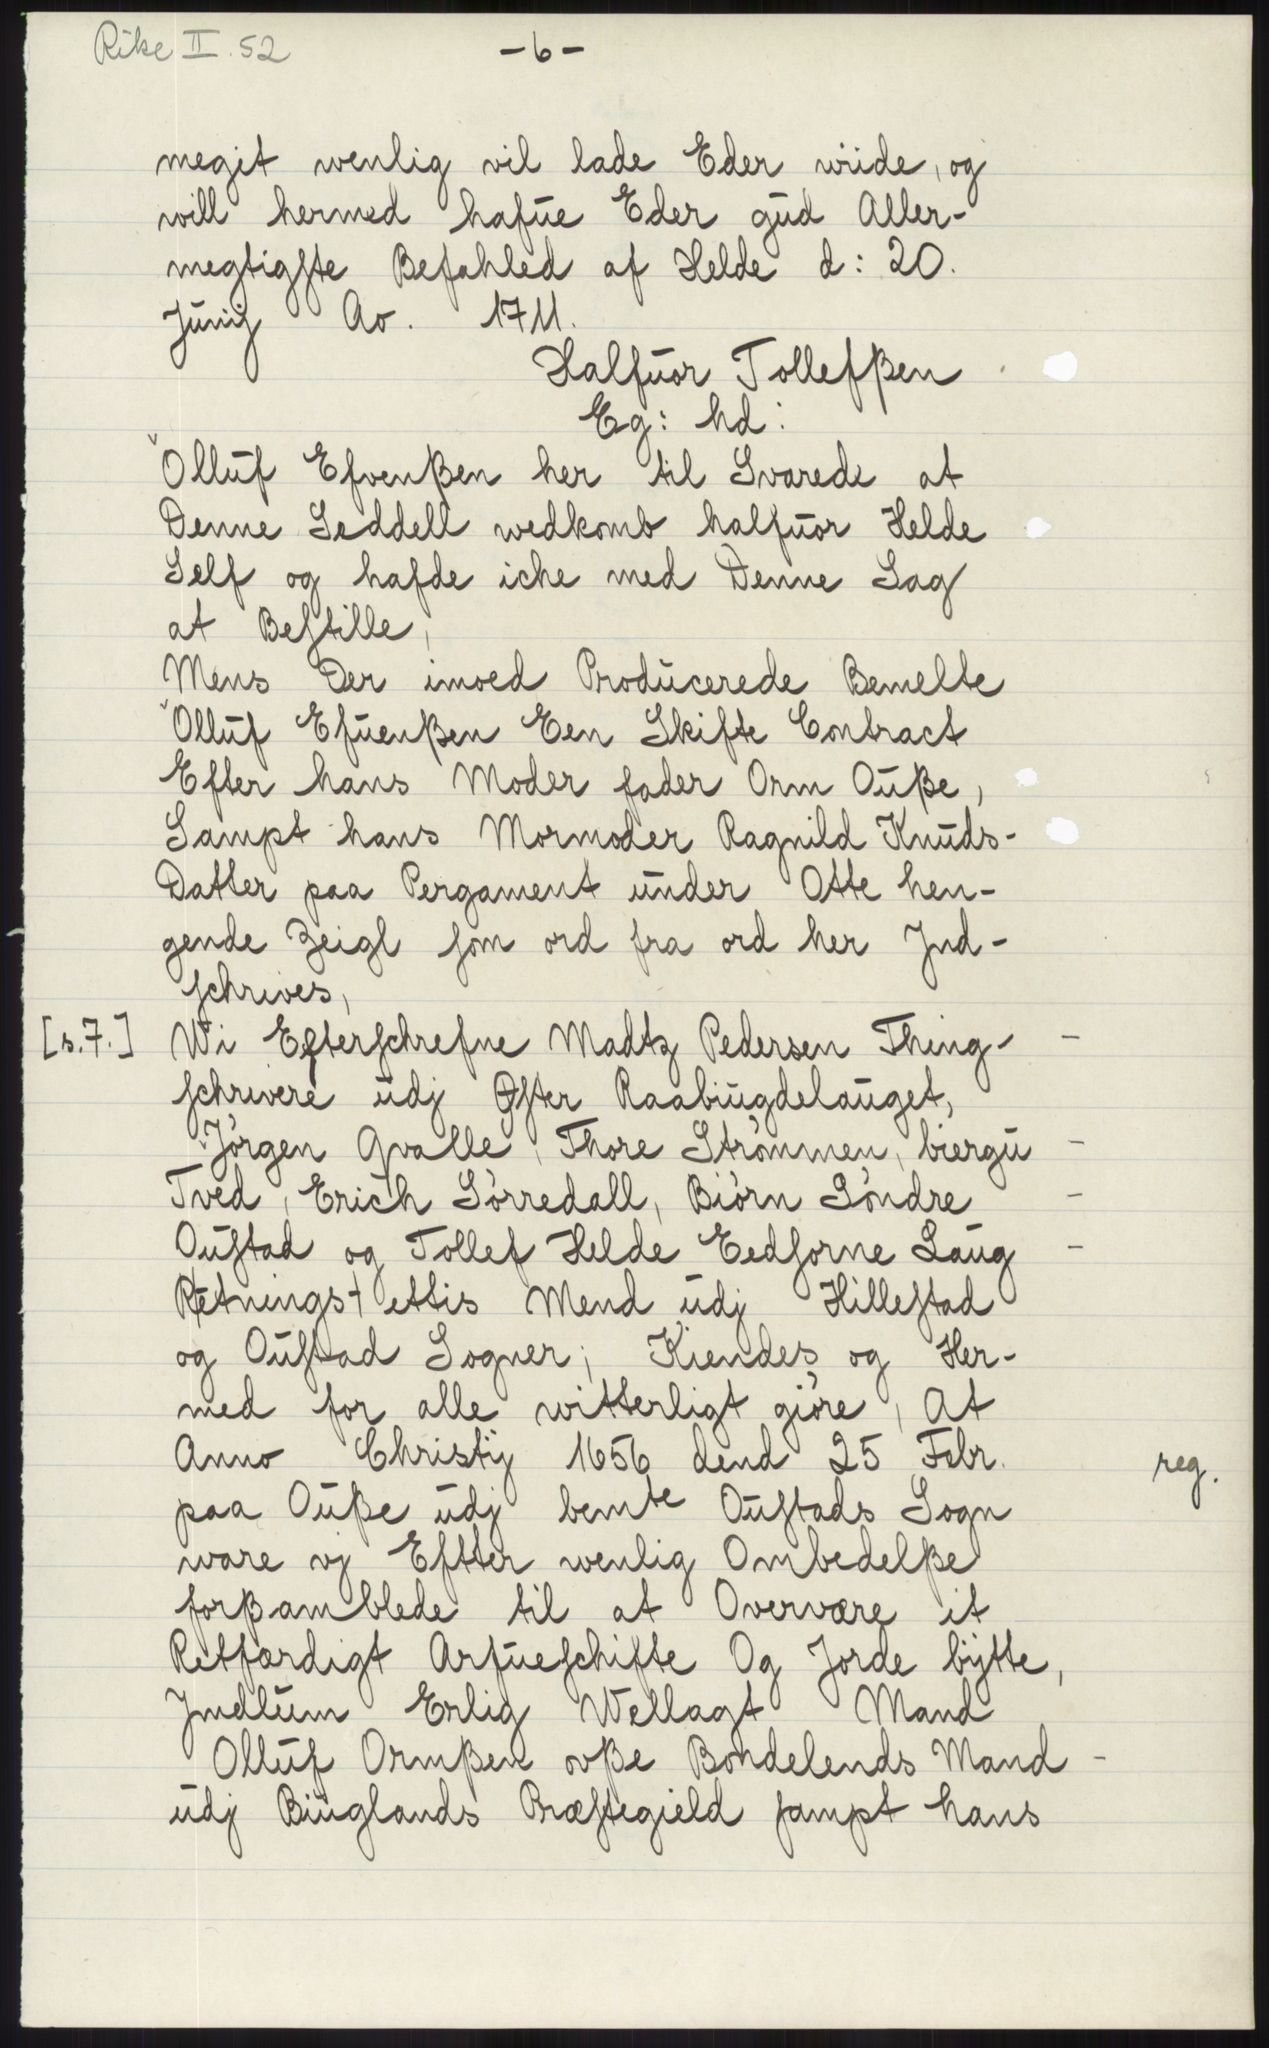 Rike II. 52
- 6 -
megit wenlig vil lade Eder wiide, og
will hermed hafue Eder gud Aller-
megtigste Befahled af Helde d: 20.
Junij Ao. 1711.
Halfuor Tollefßen
Eg: hd:
Olluf Efvenßen her til Svarede at
Denne Seddell wedkomb halfuor Helde
Self og hafde iche med Denne Sag
at Bestille,
Mens Der imoed Producerede Bemelte
Olluf Efuenßen Een Skifte Contract
Efter hans Moder fader Orm Oußе,
Sampt hans Mormoder Ragnild Knuds-
Datter paa Pergament under Otte hen-
gende Zeigl som ord fra ord her Ind-
schrives,
[s. 7.] Wi Efterschrefne Madtz Pedersen Thing-
schrivere udj Øster Raabiugdelauget,
Jörgen Qvalle, Thore Strömmen, biergu
Tved, Erich Sörredall, Biörn Söndre
Oustad og Tollef Helde Eedsorne Laug
Retnings+ettis Mend udj Hillestad
og Oustad Sogner; Kiendes og Her-
med for alle witterligt giöre, At
Anno Christÿ 1656 dend 25 Febr. reg.
paa Ouße udj bemte Oustads Sogn
ware vj Eftter wenlig Ombedelße
forßamblede til at Overvære it
Retfærdigt Arfueschifte Og Jorde bÿtte,
Imellum Erlig Wellagt Mand
Olluf Ormßen ovße Bondelends Mand
udj Biuglands Præstegield sampt hans